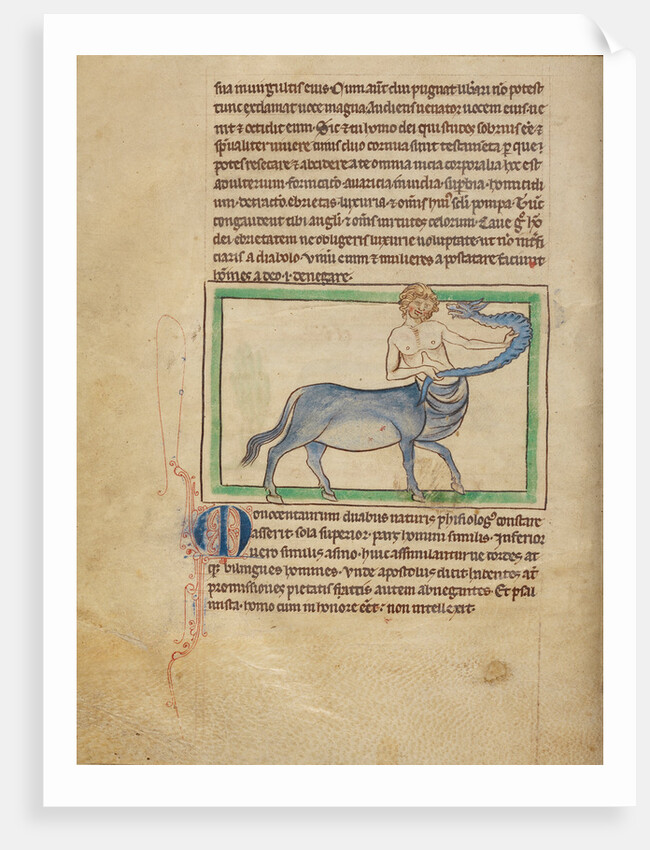 sua in uirgultis eius. Cum aut̄ diu pugnat libari nō potest
tunc exclamat uoce magna. Audiens uenator uocem eius ue
nit ⁊ occidit eum. Sic ⁊ tu homo dei qui studes sobrius eē ⁊
spūaliter uiuere cuius duo cornua sunt testamēta p que
potes resecare ⁊ abscidere a te omnia uicia corporalia hoc est
adulterium. fornicatō. auaricia. inuidia. supbia. homicidi
um. detractō. ebrietas. luxuria. ⁊ omīs huiꝰ scli pompa. Tūc
congaudent tibi angli ⁊ omīs uirtutes celorum. Caue gͦ hō
dei ebrietatem ne obligeris luxurie uoluptate ut nō int̄fi
ciaris a diabolo. Vinū enim ⁊ mulieres apostatare faciunt
homīes a deo .i. denegare.
Monocentaurum duabus naturis phisiologꝰ constare
asserit. sola superior pars homini similis. Inferior
uero similis asino. huic assimilantur uecordes at
qꝫ bilingues homines. Vnde apostolus dicit habentes aūt
promissiones pietatis factis autem abnegantes. Et psal
mista. homo cum in honore eēt. non intellexit.